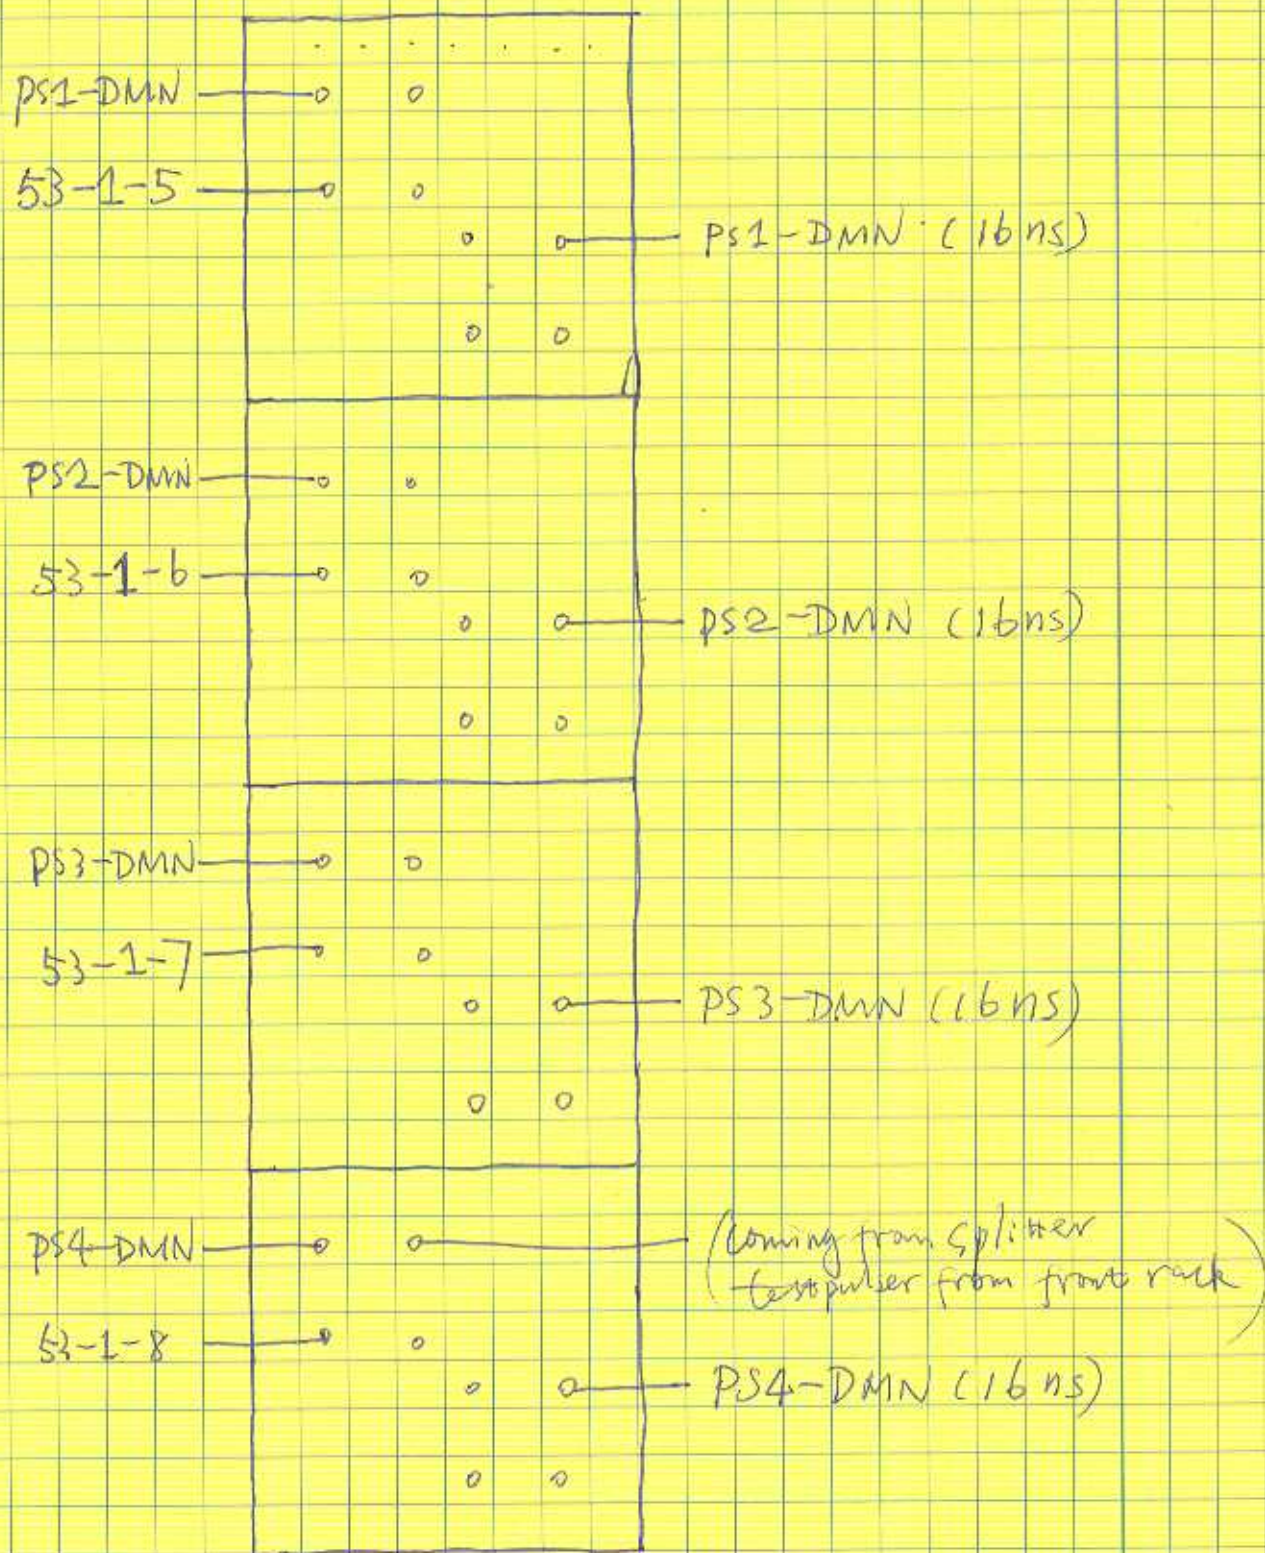 PS1-DMN
53-1-5
PS1-DMN (16ns)
PS2-DMN
53-1-6
PS2-DMN (16ns)
PS3-DMN
53-1-7
PS3-DMN (16ns)
PS4-DMN
(coming from splitter
testpulser from front rack)
53-1-8
PS4-DMN (16ns)